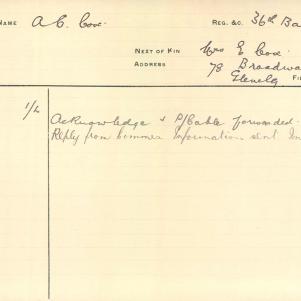 NAME A C. Cox. REG. &C. 36th Ba
NEXT OF KIN Mrs E Cox.
ADDRESS 78 Broadwa
Glenelg
1/2 Acknowledge & P/Cable forwarded.
Reply from Information sent In